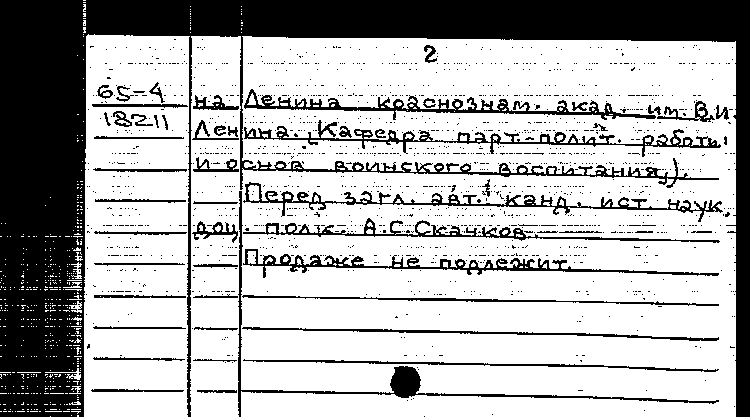 2
65-4
18211
на Ленина краснознам. акад. им. В.И.
Ленина. (Кафедра парт.-полит. работы
и основ воинского воспитания).
Перед загл. авт.: канд. ист. наук,
доц. полк. А.С.Скачков.
Продаже не подлежит.